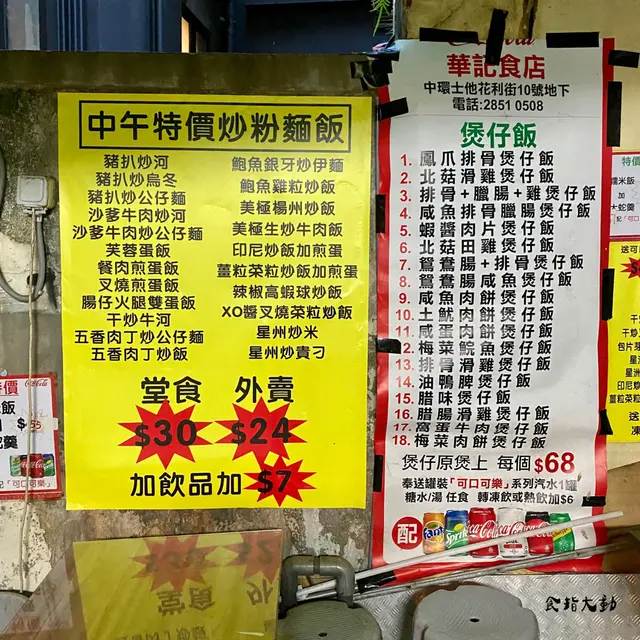 中午特價炒粉麵飯
豬扒炒河
豬扒炒烏冬
豬扒炒公仔麵
沙爹牛肉炒河
沙爹牛肉炒公仔麵
芙蓉蛋飯
餐肉煎蛋飯
叉燒煎蛋飯
腸仔火腿雙蛋飯
干炒牛河
五香肉丁炒公仔麵
五香肉丁炒飯
鮑魚銀牙炒伊麵
鮑魚雞粒炒飯
美極楊州炒飯
美極生炒牛肉飯
印尼炒飯加煎蛋
薑粒菜粒炒飯加煎蛋
辣椒高蝦球炒飯
XO醬叉燒菜粒炒飯
星州炒米
星州炒貴刁
堂食 外賣
$30 $24
加飲品加 $7
華記食店
中環士他花利街10號地下
電話:2851 0508
煲仔飯
1. 鳳爪排骨煲仔飯
2. 北菇滑雞煲仔飯
3. 排骨+臘腸+雞煲仔飯
4. 咸魚排骨臘腸煲仔飯
5. 蝦醬肉片煲仔飯
6. 北菇田雞煲仔飯
7. 鴛鴦腸+排骨煲仔飯
8. 鴛鴦腸咸魚煲仔飯
9. 咸魚肉餅煲仔飯
10. 土魷肉餅煲仔飯
11. 咸蛋肉餅煲仔飯
12. 梅菜鯇魚煲仔飯
13. 排骨滑雞煲仔飯
14. 油鴨脾煲仔飯
15. 腊味煲仔飯
16. 腊腸滑雞煲仔飯
17. 窩蛋牛肉煲仔飯
18. 梅菜肉餅煲仔飯
煲仔原煲上 每個$68
奉送罐裝「可口可樂」系列汽水1罐
糖水/湯 任食 轉凍飲或熱飲加$6
配
Fanta Sprite Coca-Cola
食指大動
特價
Coca-Cola